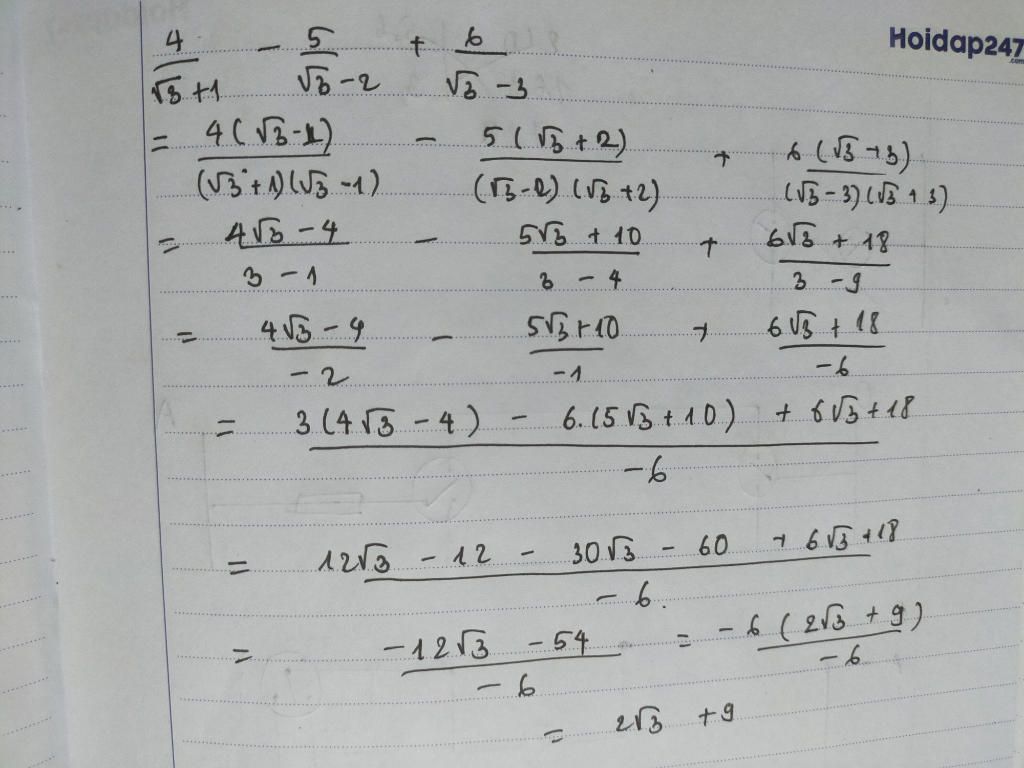 Hoidap247
.com
4/(√3+1) - 5/(√3-2) + 6/(√3-3)
= 4(√3-1)/((√3+1)(√3-1)) - 5(√3+2)/((√3-2)(√3+2)) + 6(√3+3)/((√3-3)(√3+3))
= (4√3-4)/(3-1) - (5√3+10)/(3-4) + (6√3+18)/(3-9)
= (4√3-4)/(-2) - (5√3+10)/(-1) + (6√3+18)/(-6)
= (3(4√3-4) - 6.(5√3+10) + 6√3+18)/(-6)
= (12√3 - 12 - 30√3 - 60 + 6√3+18)/(-6.)
= (-12√3 - 54)/(-6) = -6(2√3+9)/(-6)
= 2√3 + 9